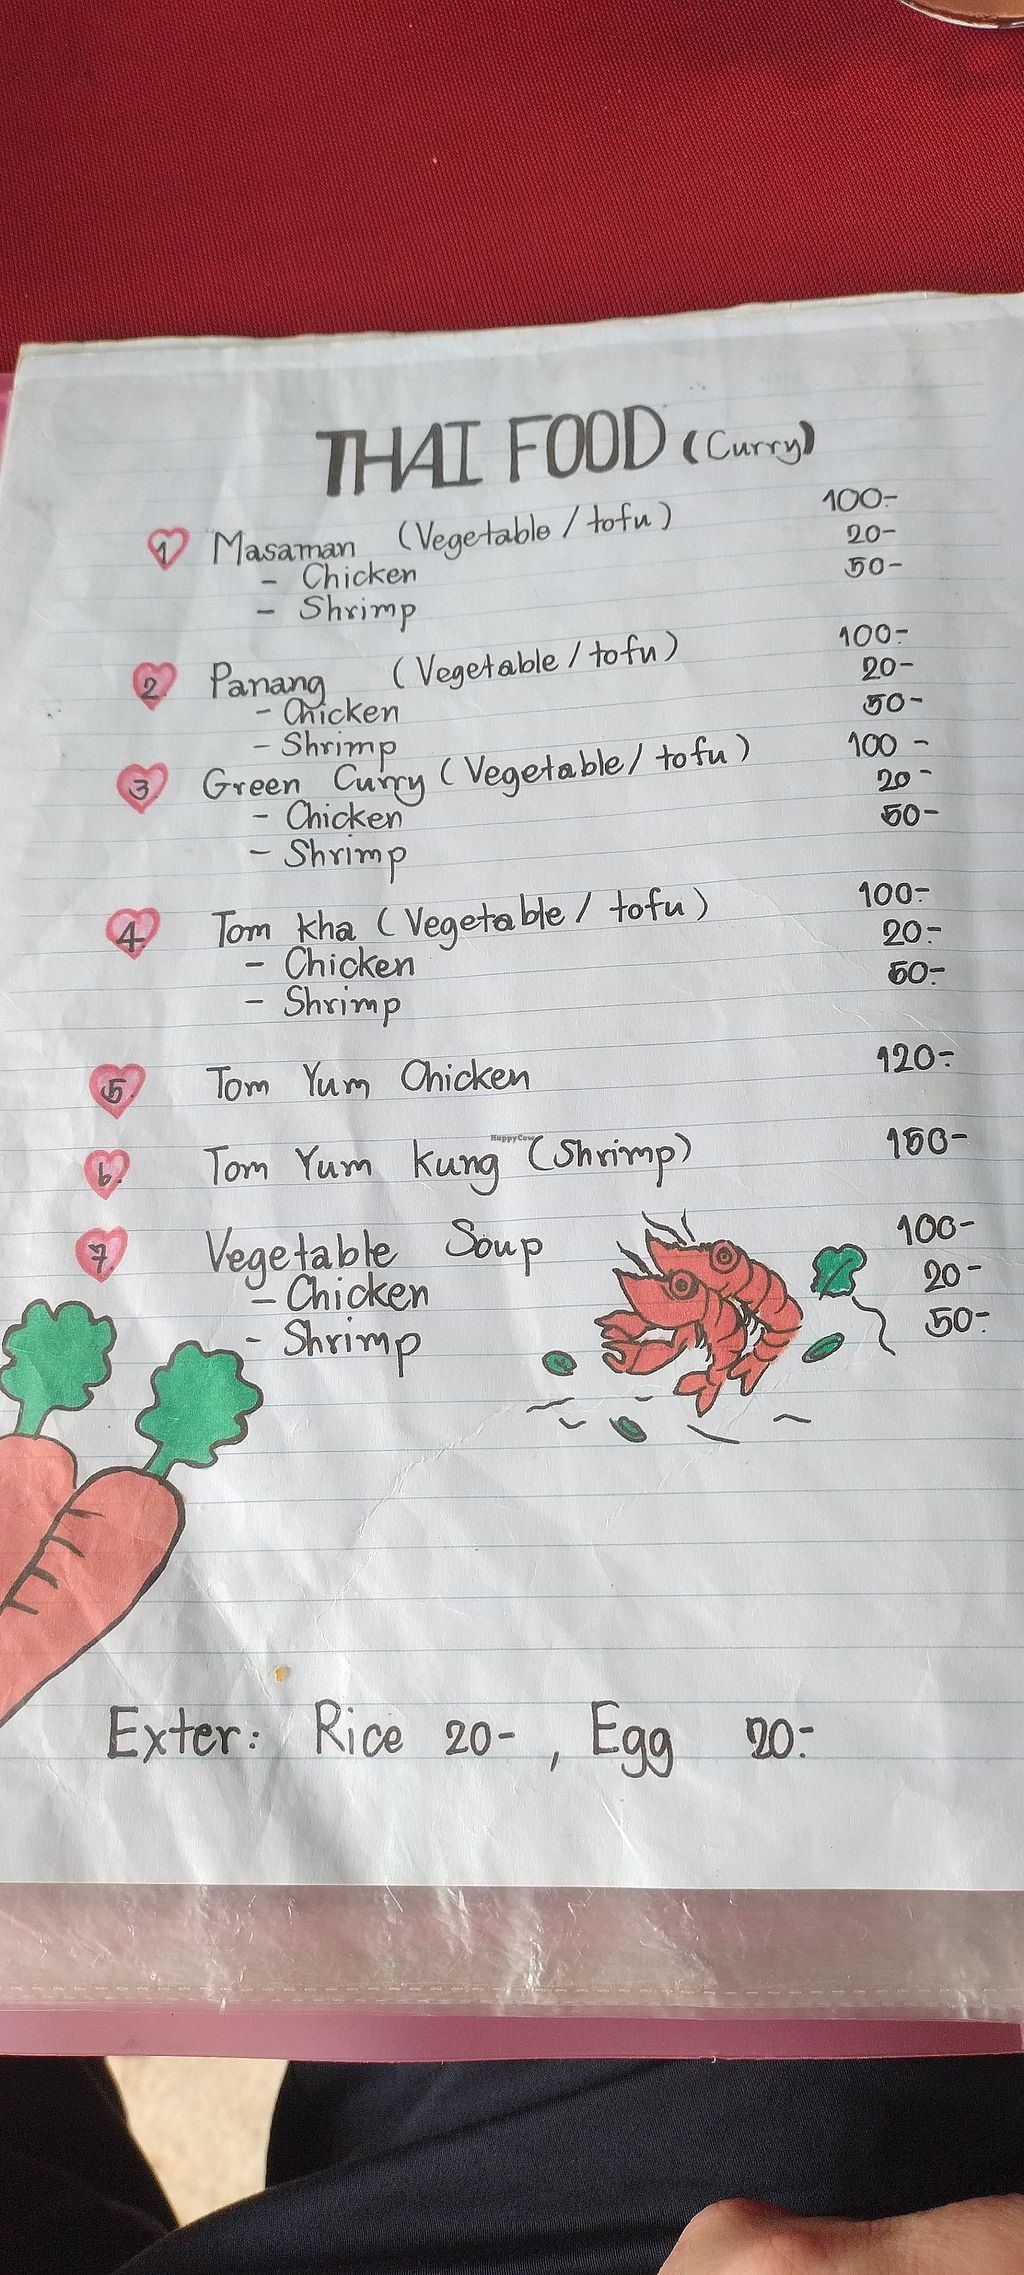 THAI FOOD (Curry)
1 Masaman (Vegetable / tofu) 100-
- Chicken 20-
- Shrimp 50-
2. Panang (Vegetable / tofu) 100-
- Chicken 20-
- Shrimp 50-
3 Green Curry (Vegetable / tofu) 100-
- Chicken 20-
- Shrimp 50-
4. Tom Kha (Vegetable / tofu) 100-
- Chicken 20-
- Shrimp 50-
5. Tom Yum Chicken 120-
HappyCow
6. Tom Yum Kung (Shrimp) 150-
7 Vegetable Soup 100-
- Chicken 20-
- Shrimp 50-
Exter: Rice 20-, Egg 20-